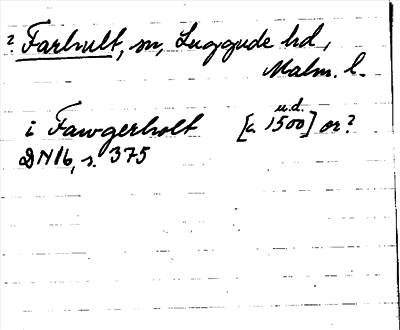 ? Farhult, sn, Luggude hd,
Malm. l.
u.d.
i Fawgerholt [c. 1500] or?
DN 16, s. 375